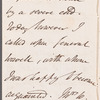 by a severe cold -
today however I
called upon General
with whom
I was happy to become
acquainted.